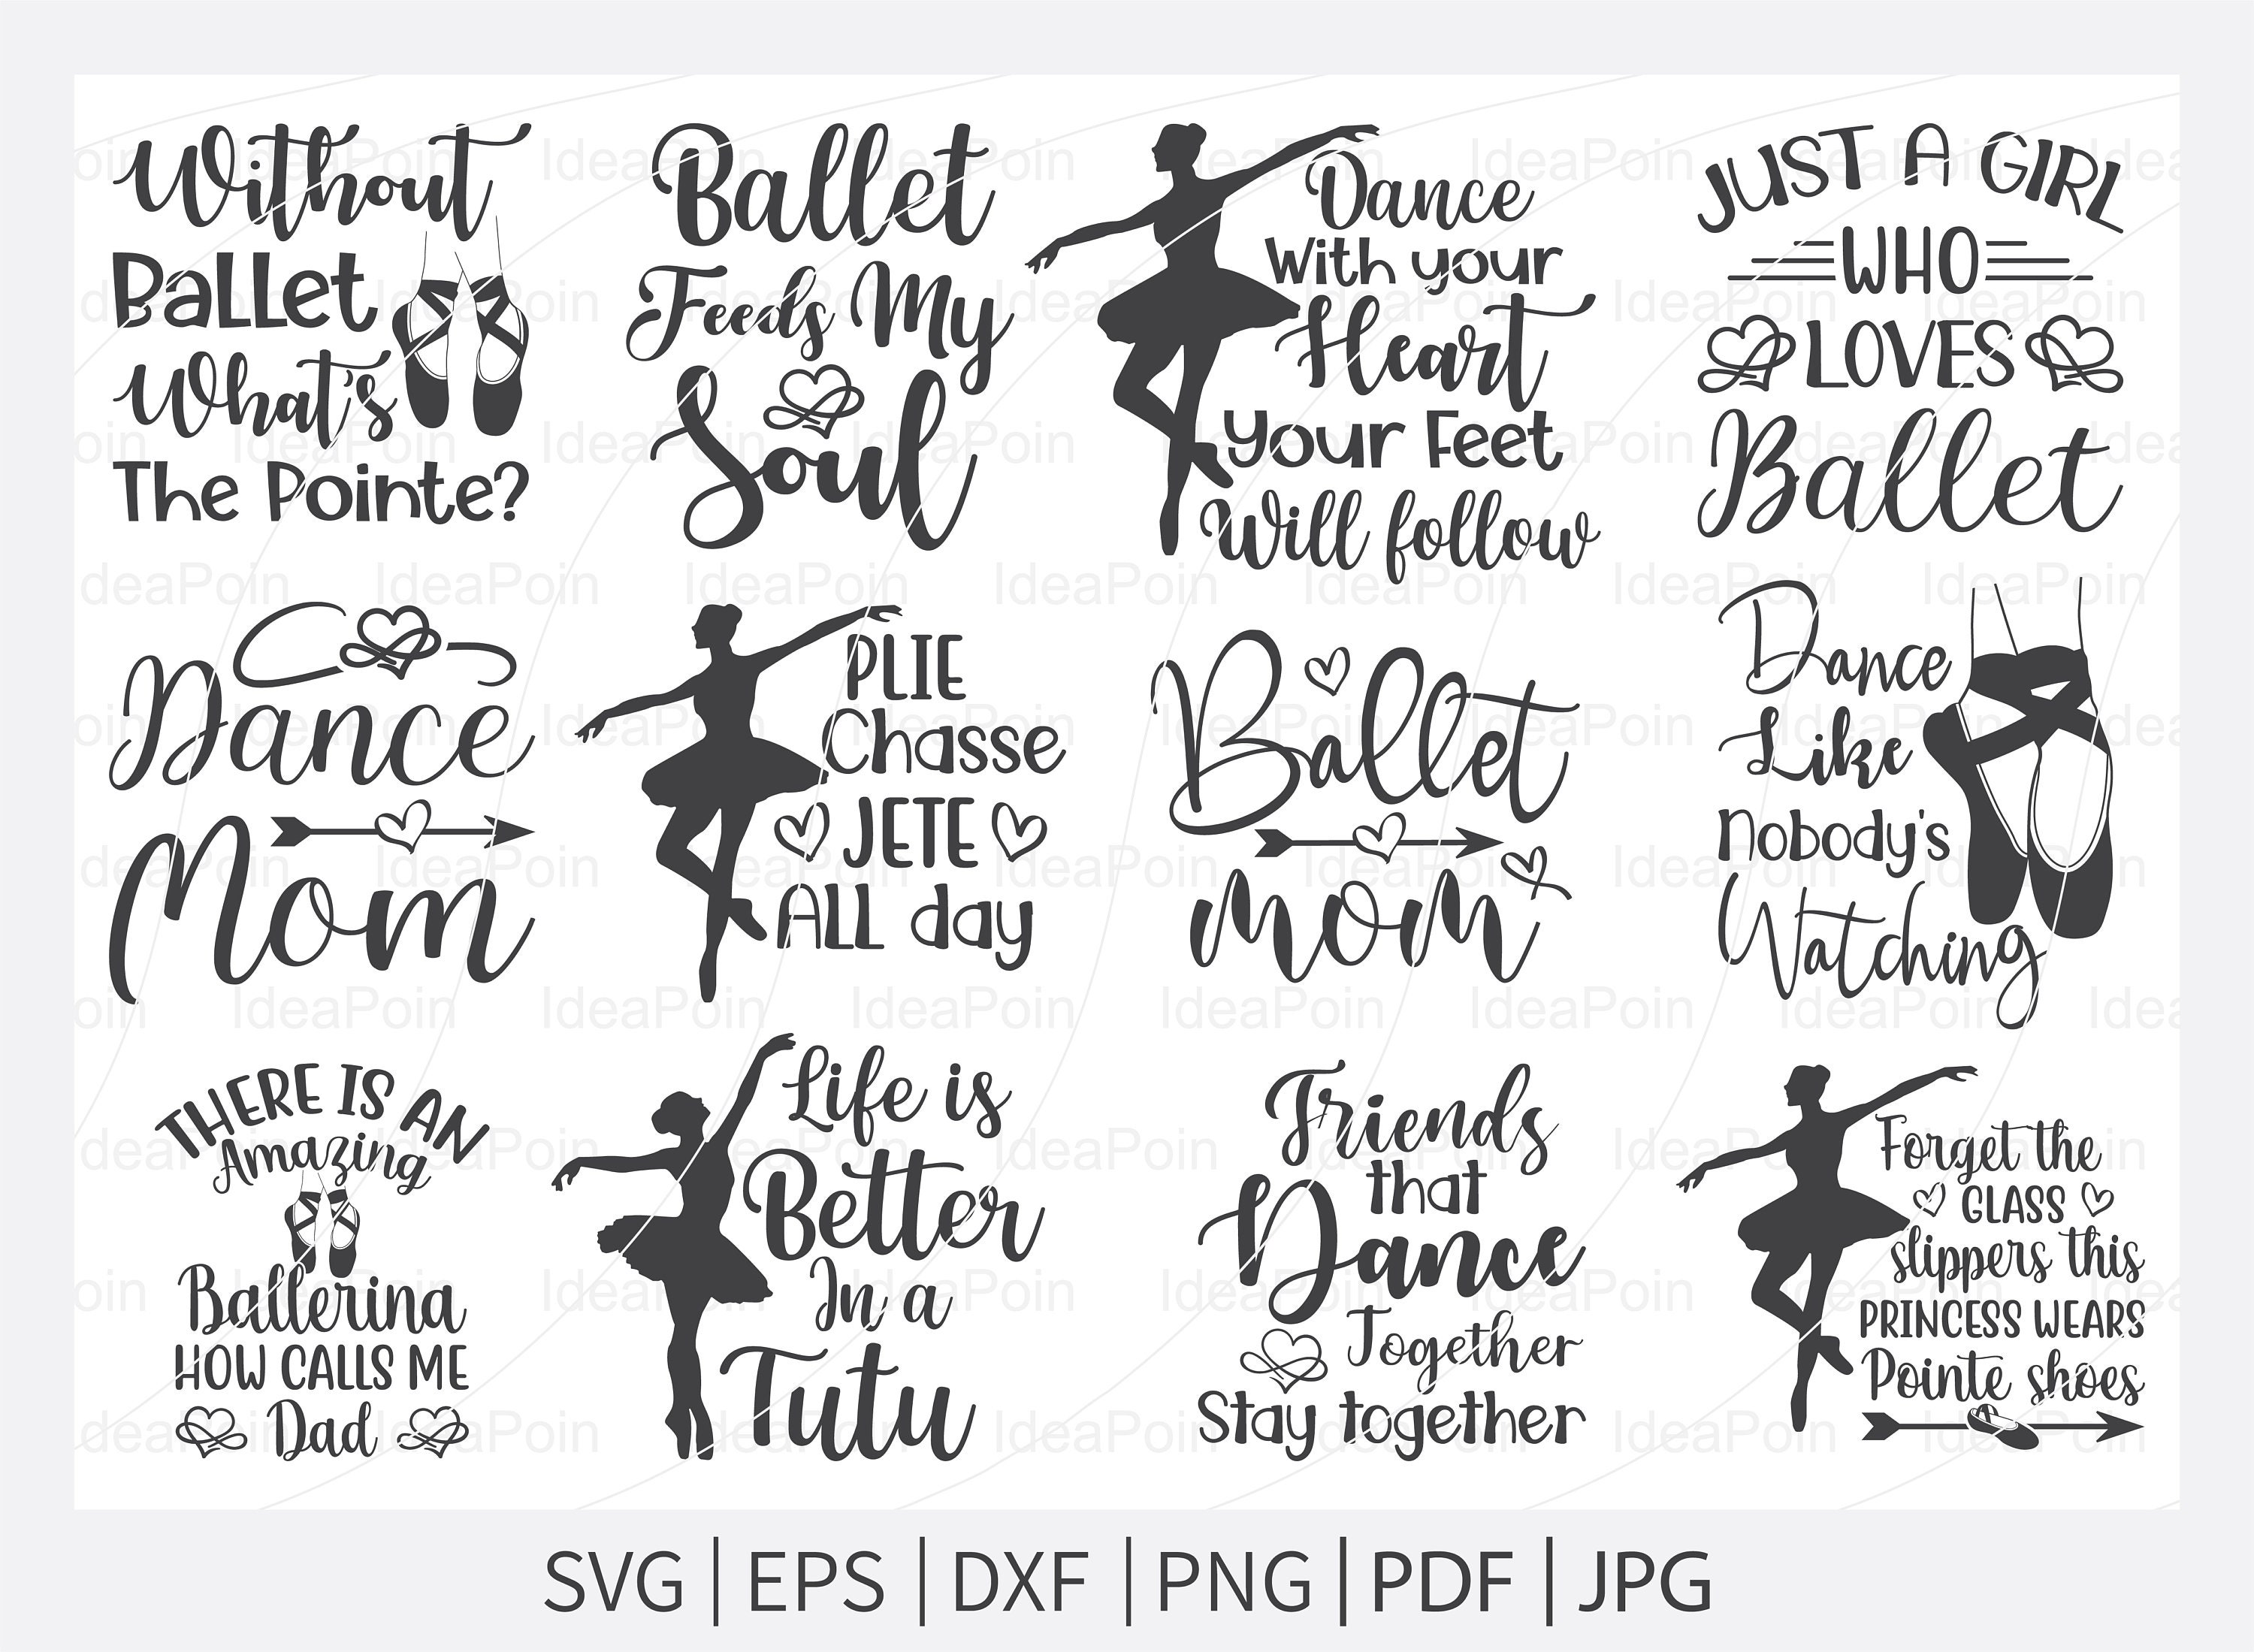 Without
Ballet
What's
The Pointe?
Ballet
Feeds My
Soul
Dance
With your
Heart
your Feet
Will follow
JUST A GIRL
WHO
LOVES
Ballet
Dance
Mom
PLIE
Chasse
JETE
ALL day
Ballet
mom
Dance
Like
Nobody's
Watching
THERE IS AN
Amazing
Ballerina
HOW CALLS ME
Dad
Life is
Better
In a
Tutu
Friends
that
Dance
Together
Stay together
Forget the
GLASS
slippers this
PRINCESS WEARS
Pointe shoes
IdeaPoin
SVG | EPS | DXF | PNG | PDF | JPG